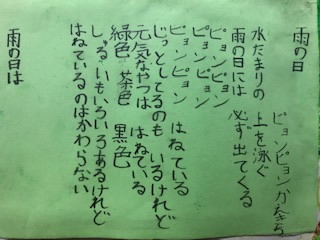 雨の日
ピョンピョン
水たまりの 上を泳ぐ
雨の日には 必ず出てくる
ピョンピョン
ピョンピョン
ピョンピョン はねている
じっとしてるのも いるけれど
元気なやつは はねている
緑色 茶色 黒色
しゅるいもいろいろあるけれど
はねているのはかわらない
雨の日は